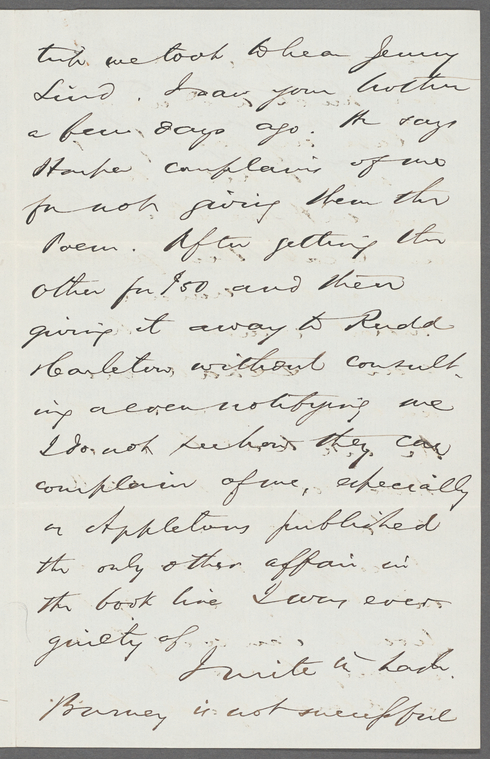 trip we took to hear Jenny
Lind. I saw your brother
a few days ago. He says
Harper complains of me
for not giving them the
Poem. After getting the
other for $50 and then
giving it away to Rudd
Carleton, without consult-
ing or even notifying me
I do not see how they can
complain of me, especially
as Appletons published
the only other affair in
the book line I was ever
guilty of.
I write in haste.
Burney is not successful